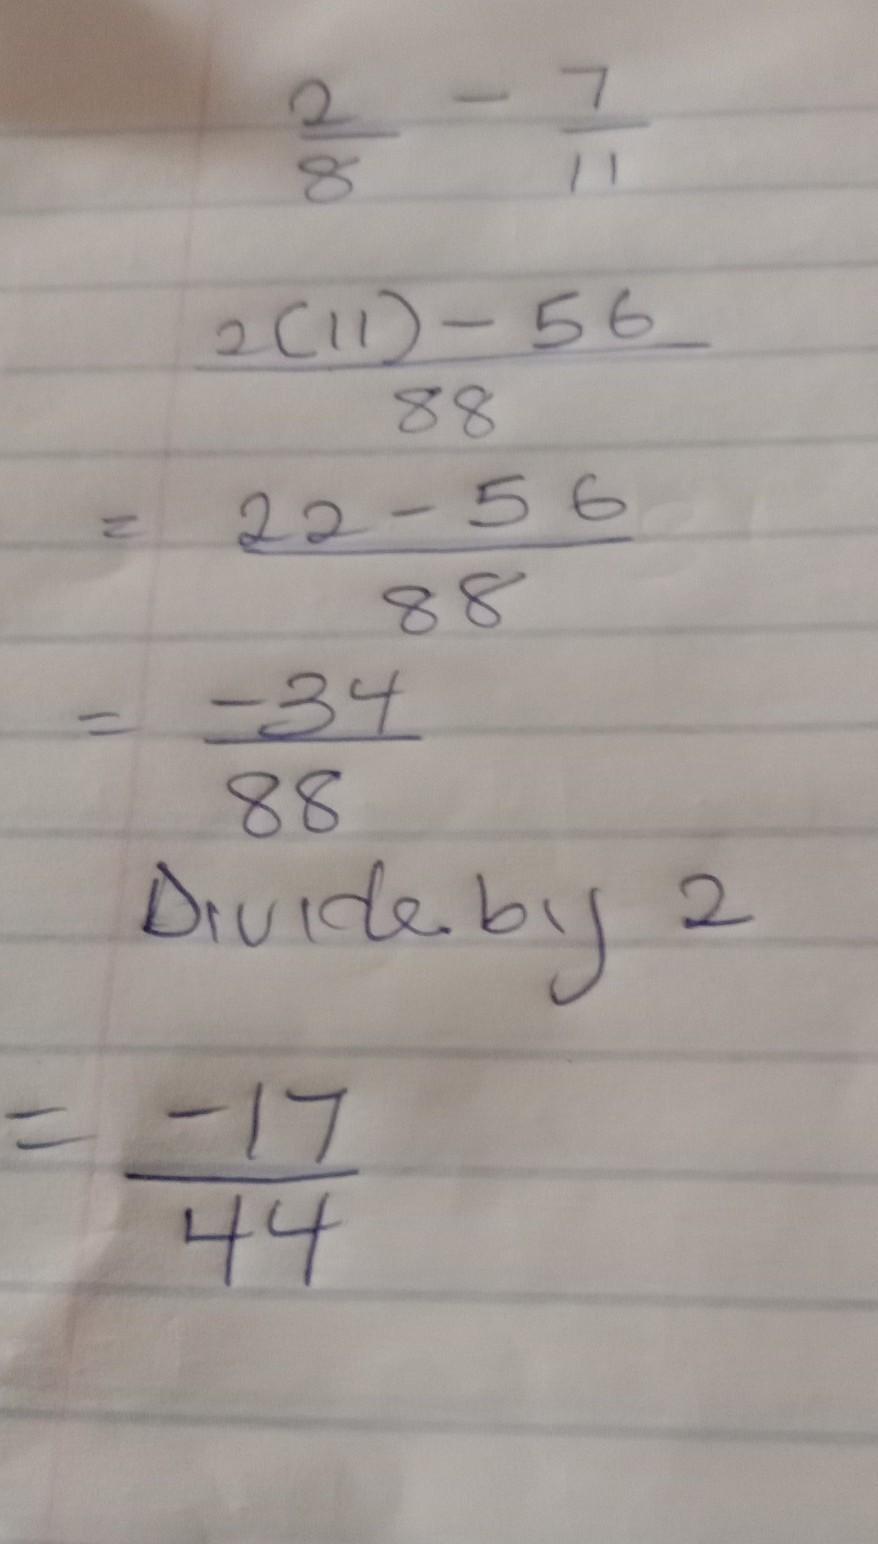 2/8 - 7/11
2(11) - 56
88
= 22 - 56
88
= -34
88
Divide by 2
= -17
44